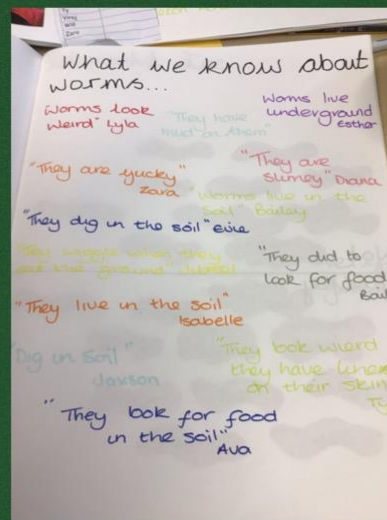 Zara
What we know about
worms...
Worms look
Weird" Lyla
"They have
mud on them"
Worms live
underground
Esther
"They are yucky"
Zara
"They are
slimey" Diana
"Worms live in the
soil" Bailey
"They dig in the soil" evie
"They wiggle when they
are the ground"
"They did to
look for food
Bail
"They live in the soil"
Isabelle
"Dig in soil"
Jaxson
"They look wierd
they have lines
on their skin
"They look for food
in the soil"
Ava